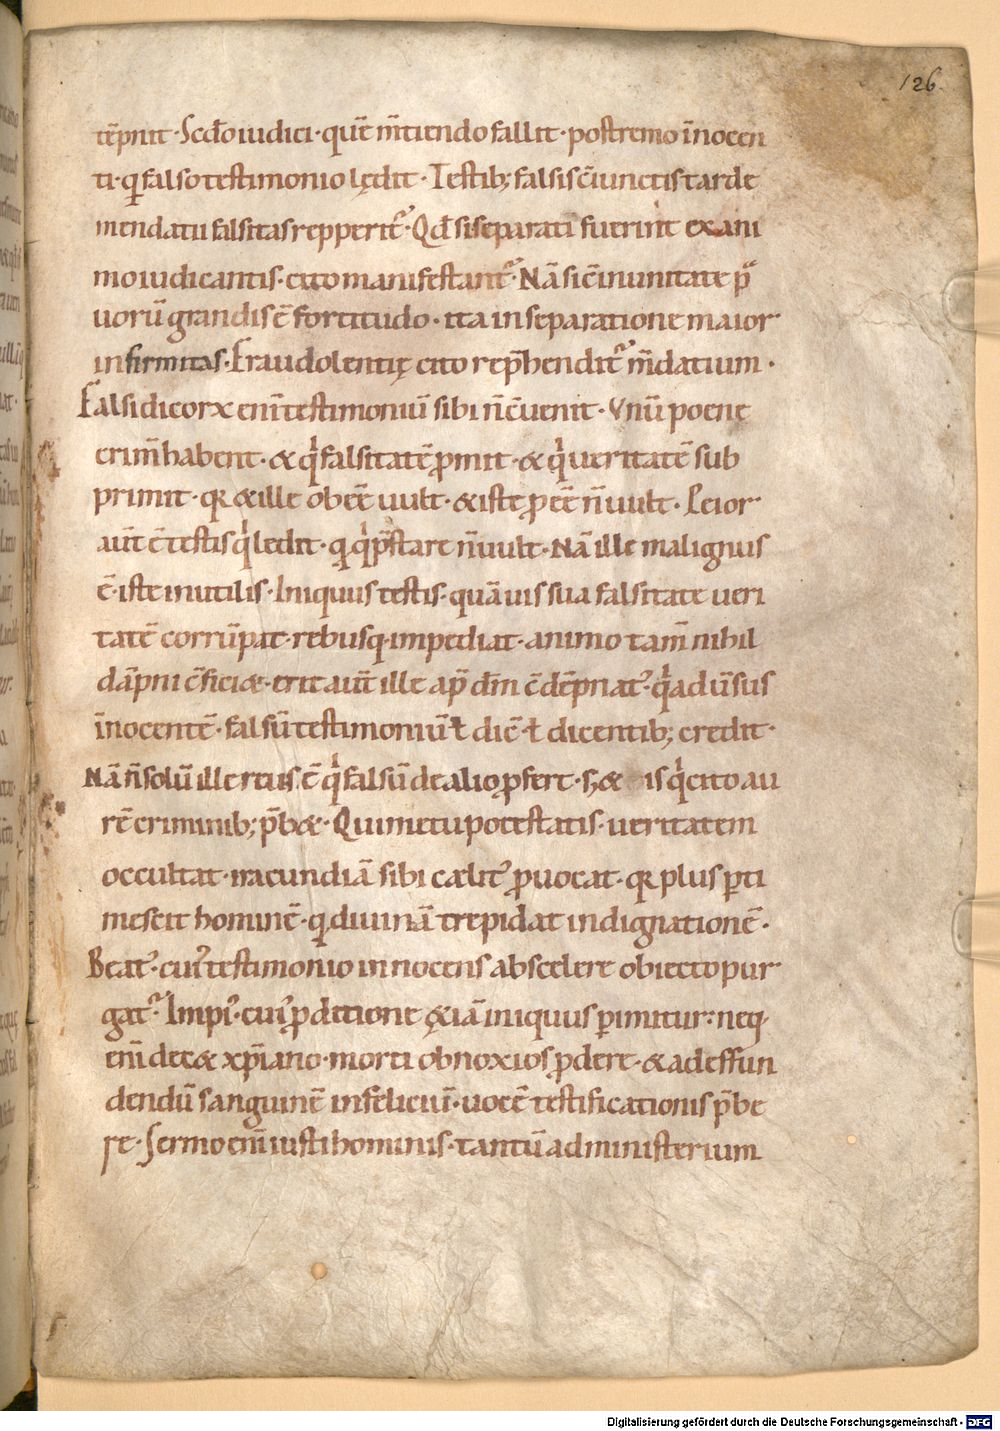 126.
tēpnit · Scd̄o iudici · quē m̄tiendo fallit · postremo īnocen
ti · q̄ falso testimonio lędit · Testib; falsis c̄iunctis tarde
mendatii falsitas repperit᷑ · Qd̄ si separati fuerint exani
mo iudicantis · cito manifestant᷑ · Nā sic̄ in unitate p̄
uorū grandis ē fortitudo · ita in separatione maior
infirmitas · Fraudolentię cito rep̄hendit᷑ m̄datium ·
Falsidicorx enī testimoniū sibi n̄ c̄uenit · Vnū poene
crim̄ habent · & qͥ falsitatē ꝓmit · & qͥ ueritatē sub
primit · qꝛ & ille obēe uult · & iste ꝓdēe n̄ uult · Leior
aūt ē testis qͥ ledit · qͣ qͥ p̄stare n̄ uult · Nā ille malignus
ē · iste inutilis · Iniquus testis · quāuis sua falsitate ueri
tatē corrūpat · rebusq · impediat · animo tam̄ nihil
dāpni c̄ficiæ · erit aūt ille ap̄ dm̄ c̄dēpnat᷒ · qͥ aduͥsus
īnocentē · falsū testimoniū ł dic̄ ł dicentib; credit ·
Nā n̄ solū ille reus ē qͥ falsū de alio ꝓfert · s; & is qͥ cito au
rē criminib; p̄bæ · Qui metu potestatis · ueritatem
occultat · iracundiā sibi cælit᷒ ꝓuocat · qꝛ plus ꝑti
mescit hominē · q̄ diuinā trepidat indignationē ·
Beat᷒ · cuiͥ testimonio innocens ab scelere obiecto pur
gat᷑ · Impi᷒ · cuiͥ ꝓditione ęiā iniquus ꝑimitur : neq ·
enī decæ xp̄iano · morti obnoxios ꝓdere · & ad effun
dendū sanguinē infeliciū · uocē testificationis p̄be
re · Sermo enī iusti hominis · tantū ad ministerium
Digitalisierung gefördert durch die Deutsche Forschungsgemeinschaft - DFG